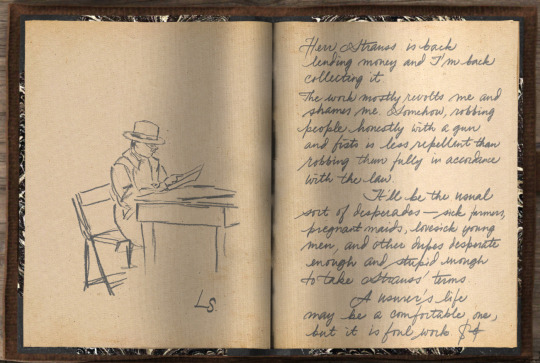 LS.
Herr Strauss is back
lending money and I'm back
collecting it.
The work mostly revolts me and
shames me. Somehow, robbing
people honestly with a gun
and fists is less repellent than
robbing them fully in accordance
with the law.
It'll be the usual
sort of desperados — sick farmers,
pregnant maids, lovesick young
men, and other dupes desperate
enough and stupid enough
to take Strauss' terms
A usurer's life
may be a comfortable one,
but it is foul work.